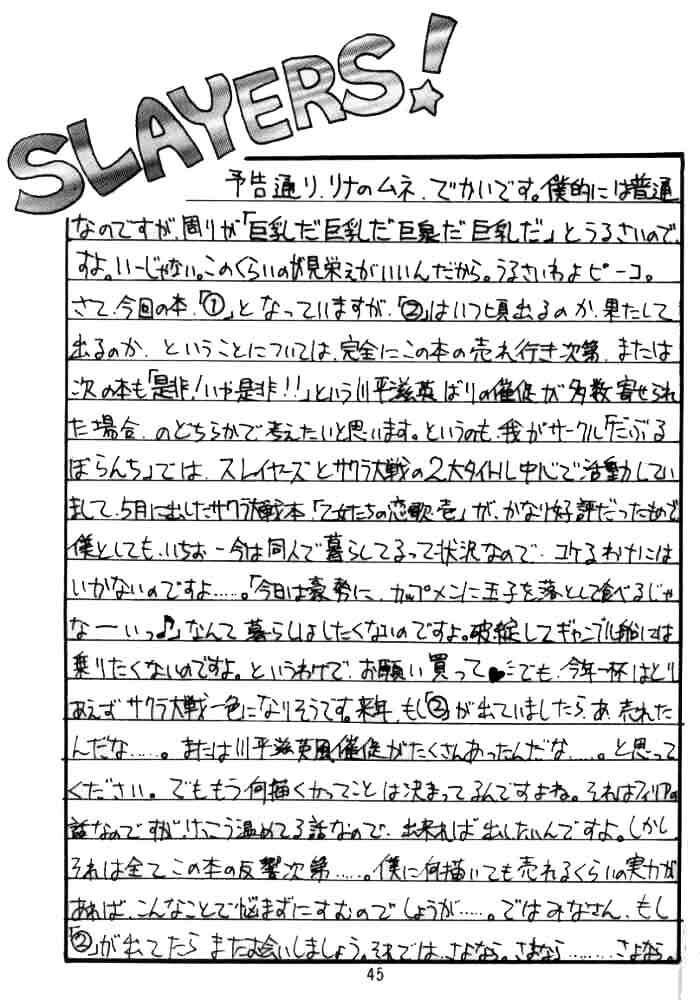 SLAYERS!
予告通り、リナのムネ、でかいです。僕的には普通
なのですが、周りが「巨乳だ巨乳だ巨臭だ巨乳だ」とうるさいので
すよ。いーじゃない。このくらいのが見栄えがいいんだから。うるさいわよピーコ。
さて、今回の本、「①」となっていますが、「②」はいつ頃出るのか、果たして
出るのか、ということについては、完全にこの本の売れ行き次第、または
次の本も「是非!いや是非!!」という川平滋英ばりの催促が多数寄せられ
た場合、のどちらかで考えたいと思います。というのも、我がサークル「だぶる
ぼらんち」では、スレイヤーズとサクラ大戦の2大タイトル中心で活動してい
まして、5月に出したサクラ大戦本「乙女たちの恋歌壱」が、かなり好評だったもので
僕としても、いちお一今は同人で暮らしてるって状況なので、コケるわけには
いかないのですよ……。「今日は豪勢に、カップメンに玉子を落として食べるじゃ
なーいっ♪」なんて暮らしはしたくないのですよ。破綻してギャンブル船には
乗りたくないのですよ。というわけで、お願い買って♥…でも、今年一杯はとり
あえずサクラ大戦一色になりそうです。来年、もし「②」が出ていましたら、あ、売れた
んだな……。または川平滋英風催促がたくさんあったんだな……。と思って
ください。でももう何描くかってことは決まってるんですよね。それはフィリアの
話なのですが、けっこう温めてる話なので、出来れば出したいんですよ。しかし
それは全てこの本の反響次第……。僕に何描いても売れるくらいの実力が
あれば、こんなことで悩まずにすむのでしょうが……。ではみなさん、もし
「②」が出てたらまたお会いしましょう。それでは、さよなら。さよなら………さよなら。
45